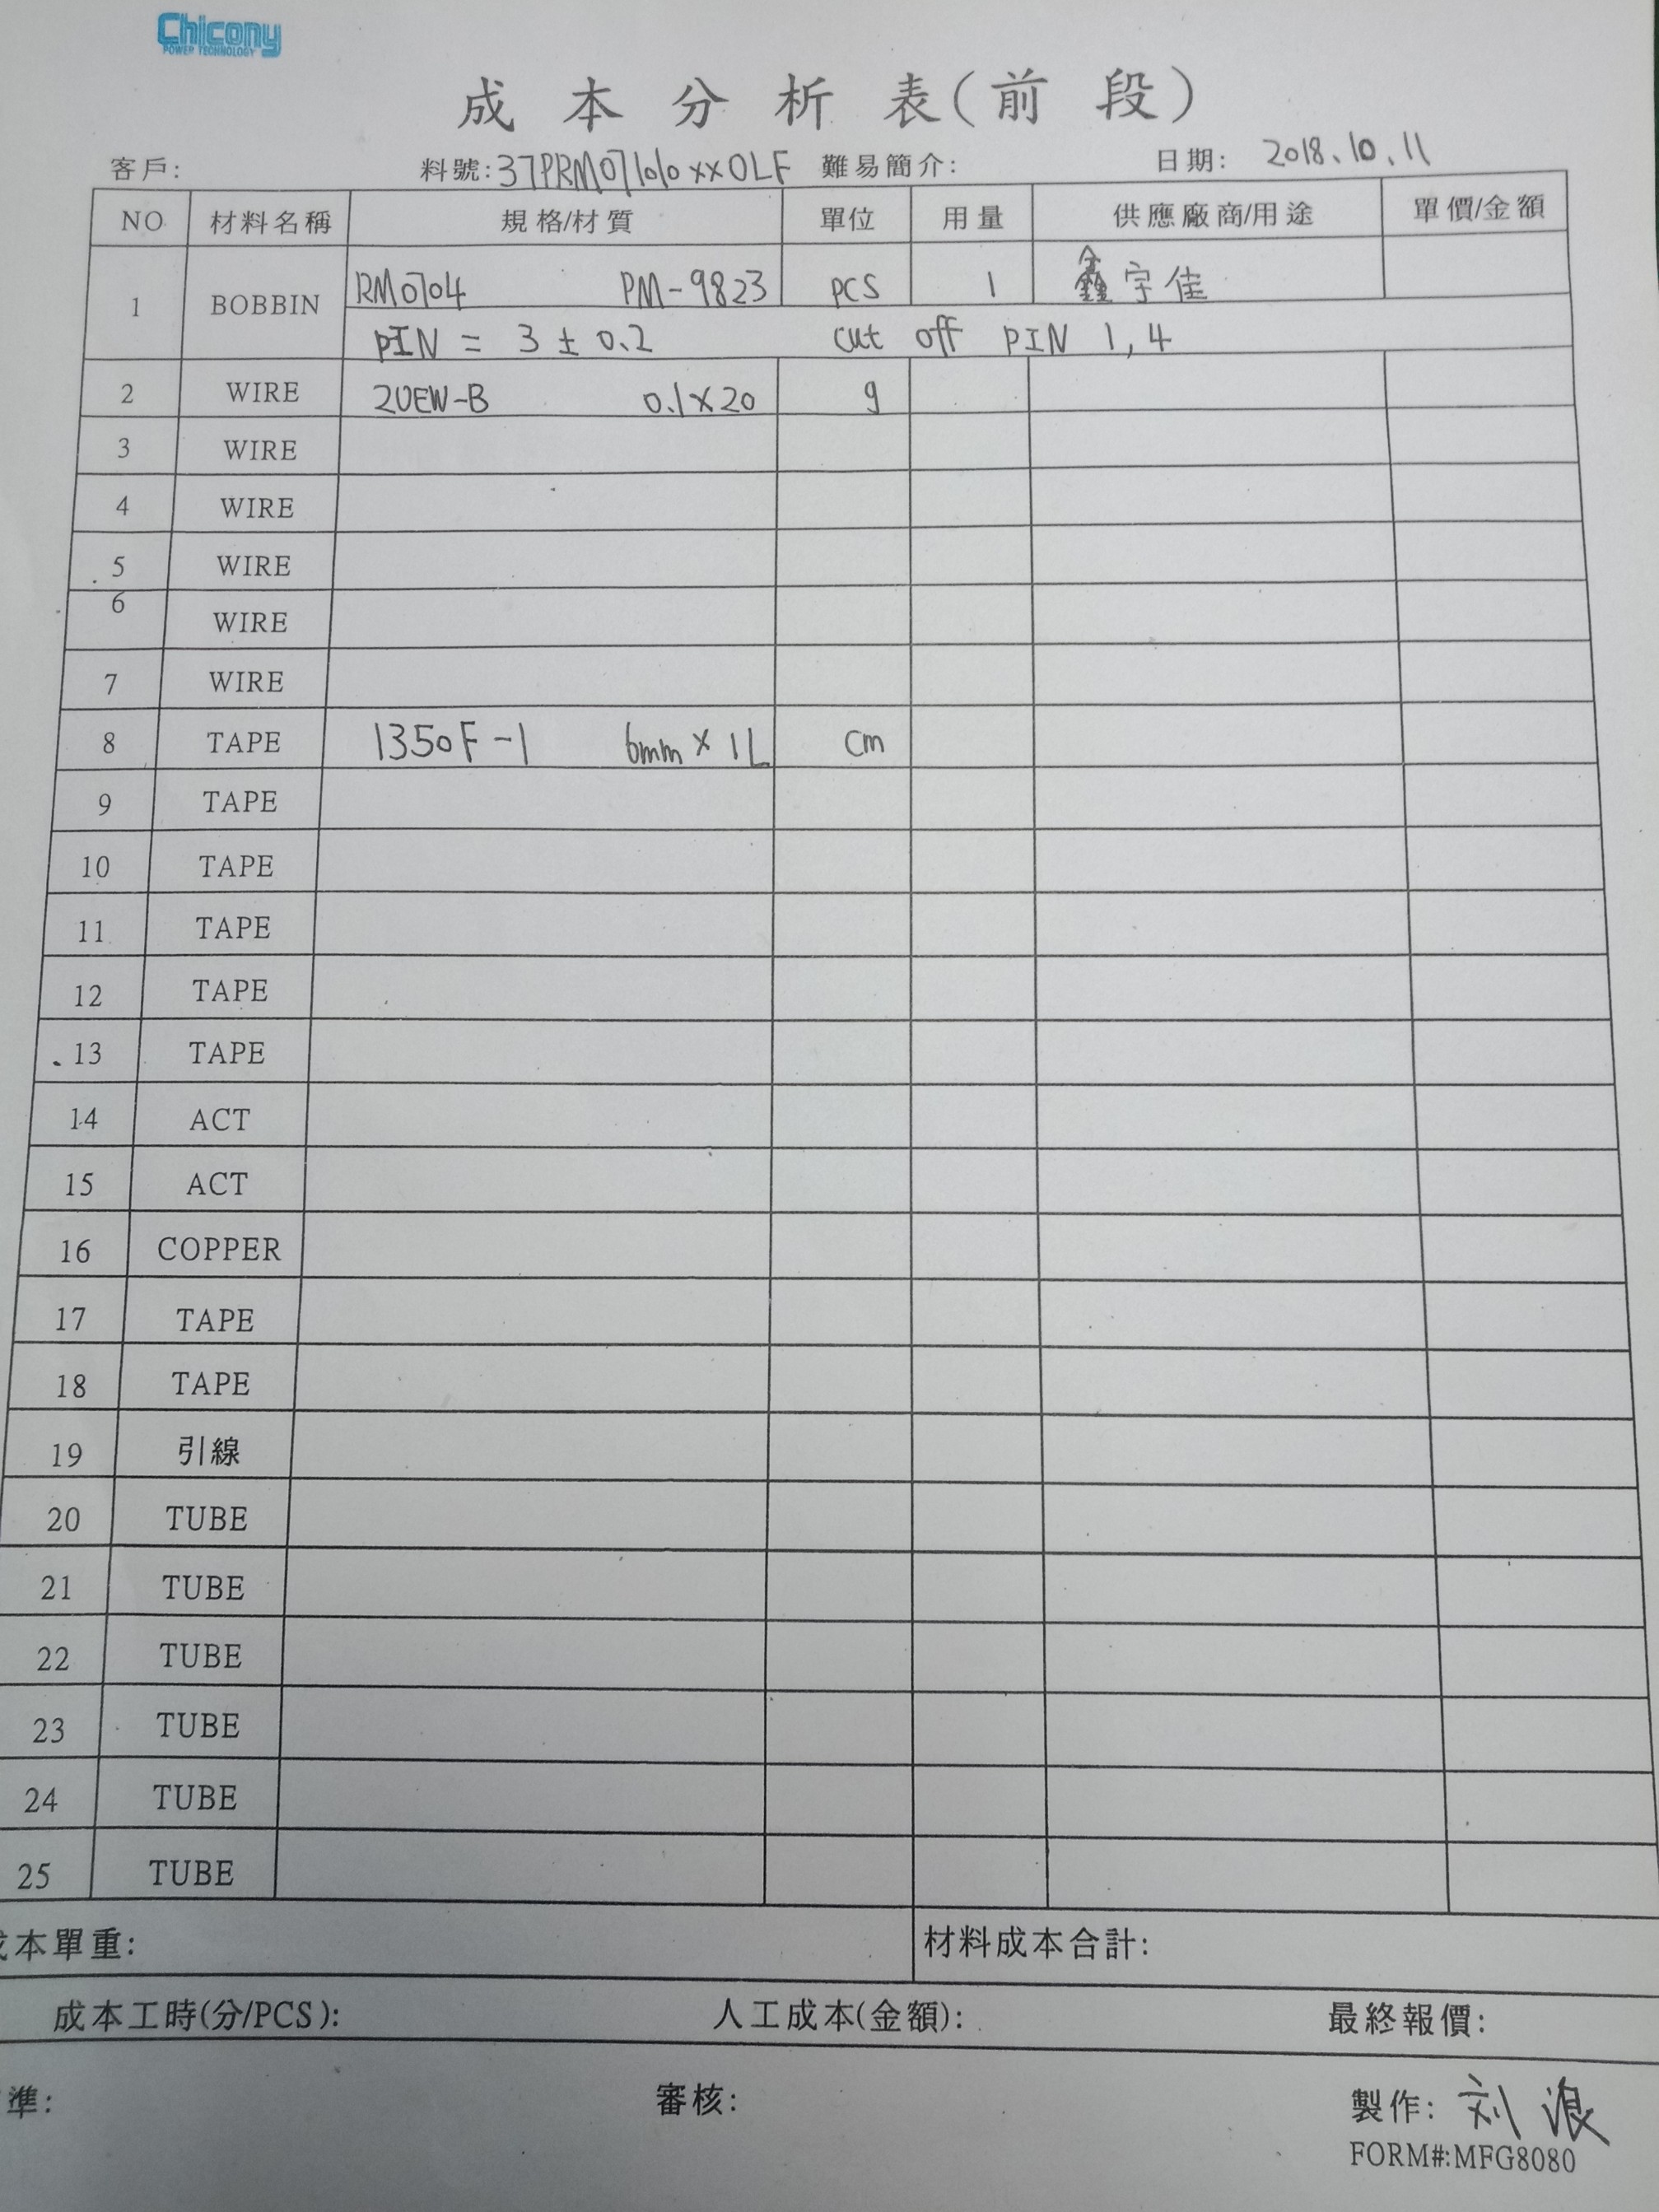 Chicony
POWER TECHNOLOGY
成本分析表(前段)
客戶: 料號:37PRM071010xxOLF 難易簡介: 日期: 2018.10.11
NO 材料名稱 規格/材質 單位 用量 供應廠商/用途 單價/金額
1 BOBBIN RM0704 PM-9823 PCS 1 鑫宇佳
PIN = 3 ± 0.2 cut off PIN 1,4
2 WIRE 2UEW-B 0.1×20 g
3 WIRE
4 WIRE
5 WIRE
6 WIRE
7 WIRE
8 TAPE 1350F-1 6mm × 1L cm
9 TAPE
10 TAPE
11 TAPE
12 TAPE
13 TAPE
14 ACT
15 ACT
16 COPPER
17 TAPE
18 TAPE
19 引線
20 TUBE
21 TUBE
22 TUBE
23 TUBE
24 TUBE
25 TUBE
成本單重: 材料成本合計:
成本工時(分/PCS): 人工成本(金額): 最終報價:
準: 審核: 製作: 刘浪
FORM#:MFG8080